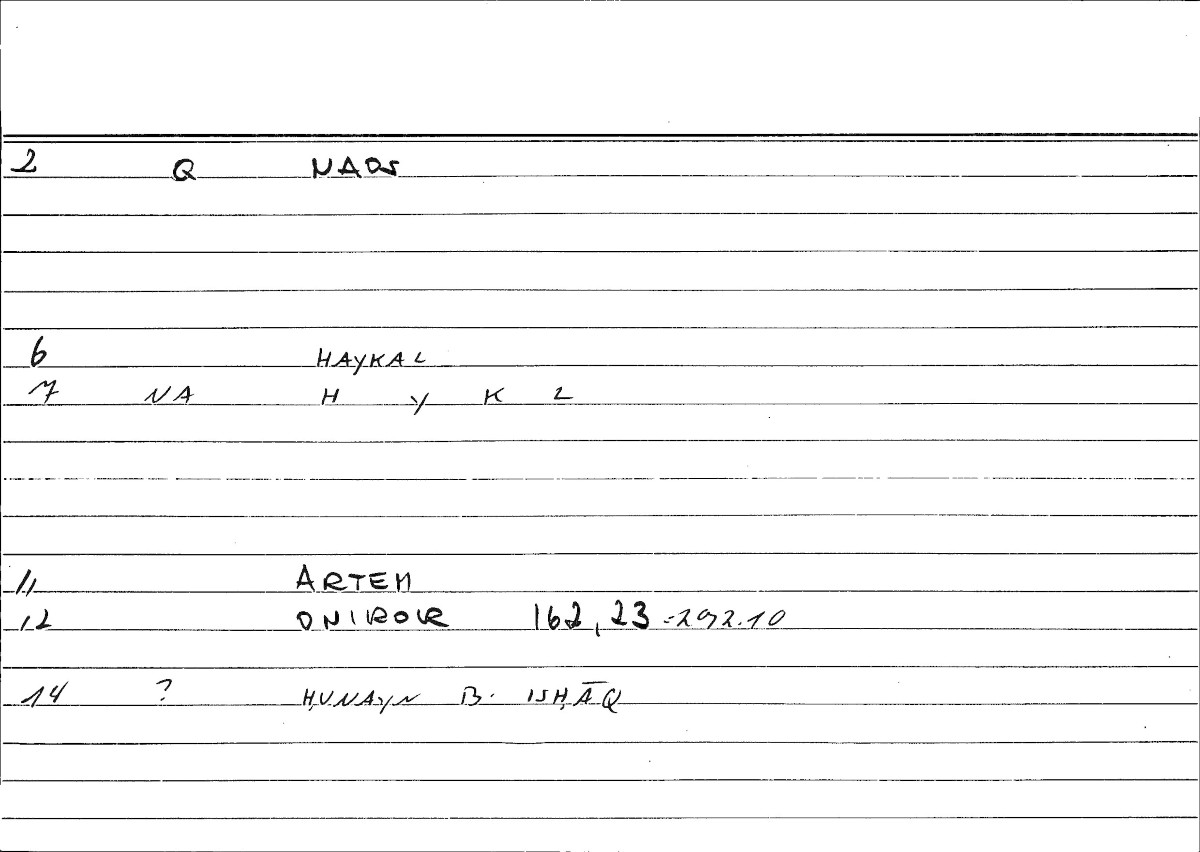 2 Q NAOS
6 HAYKAL
7 NA H Y K L
11 ARTEM
12 ONIROK 162,23 = 292.10
14 ? ḤUNAYN B. ISḤĀQ